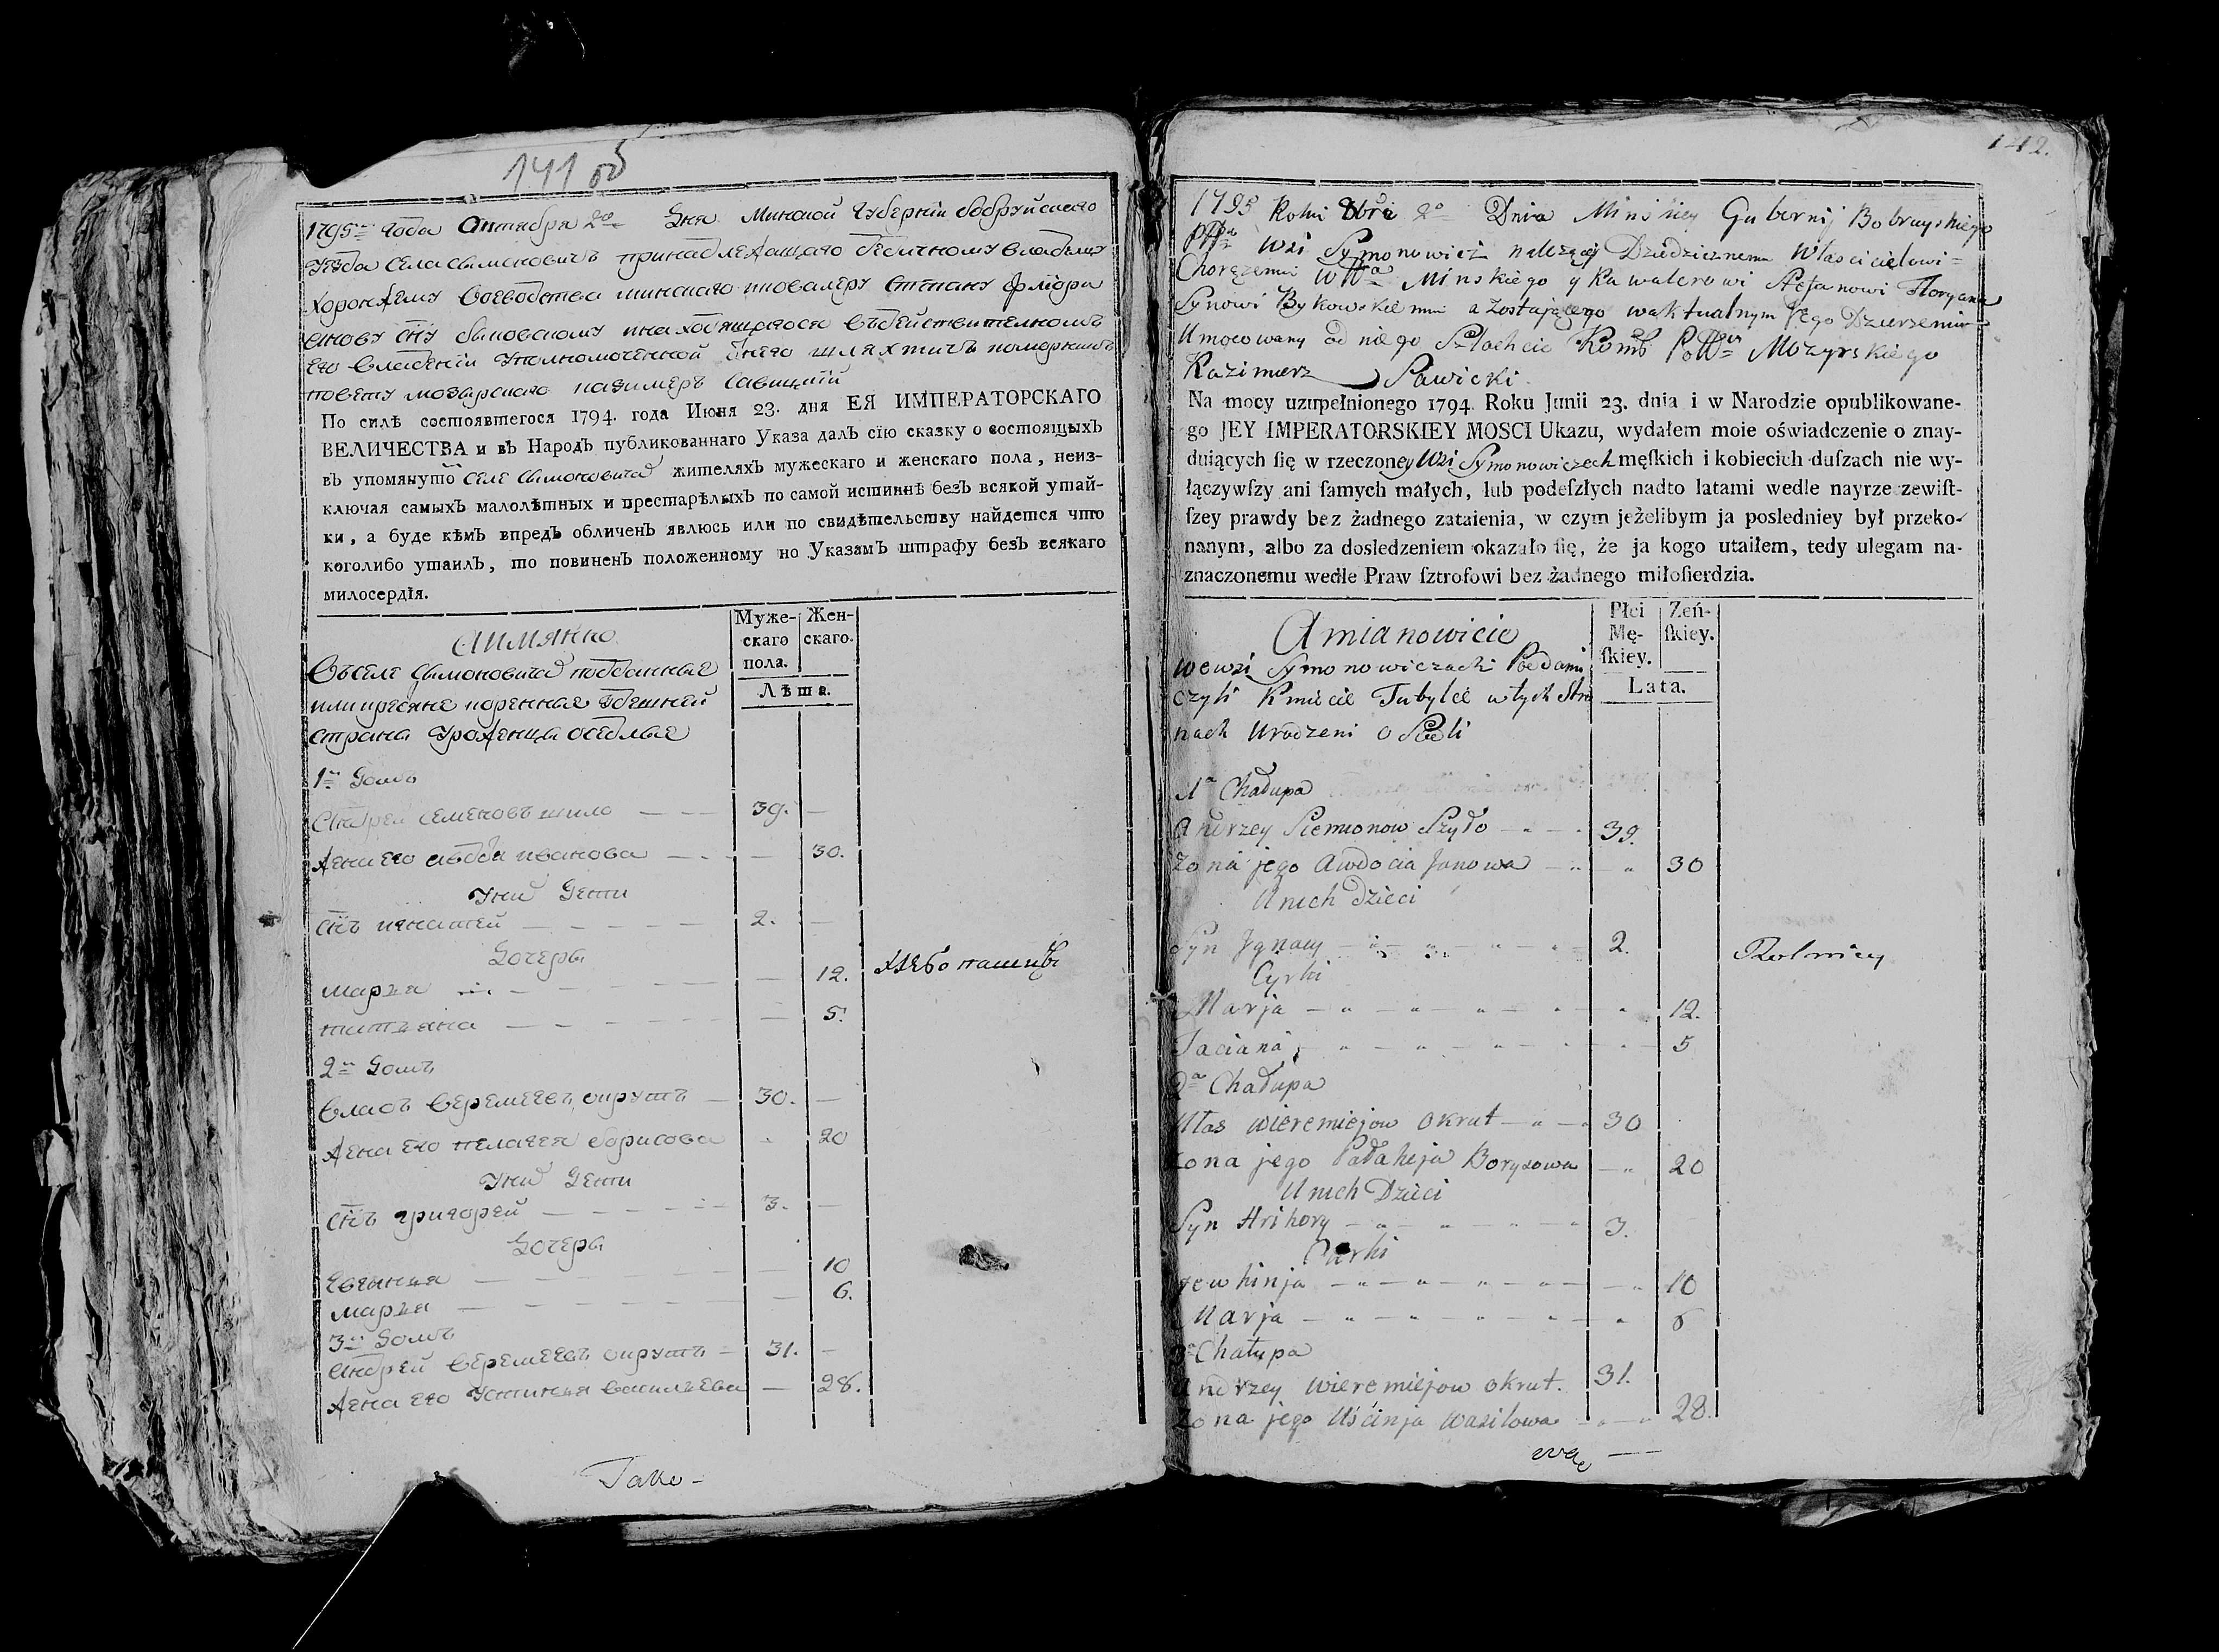 141 об
1795го года Октября 2го дня Минской Губернїи бобруйскаго
уѣзда села Симоновичъ принадлежащаго дѣдичному владѣлцу
хоронжему воеводства минскаго кновалеру Степану флїорїа
нову сну быковскому инаходящагося въдѣйствителномъ
его владѣнїи уполномоченной отнего шляхтичъ коморникъ
повѣту мозырскаго казимеръ Савицкїй
По силѣ состоявтегося 1794. года Июня 23. дня ЕЯ ИМПЕРАТОРСКАГО
ВЕЛИЧЕСТВА и вЪ НародЪ публикованнаго Указа далЪ сїю сказку о состоящыхЪ
вЪ упомянуто селе Симоновичах жителяхЪ мужескаго и женскаго пола, неиз-
ключая самыхЪ малолѣтныхЪ и престарѣлыхЪ по самой истиннѣ безЪ всякой утай-
ки, а буде кѣмЪ впредЪ обличенЪ явлюсь или по свидѣтельству найдется что
коголибо утаилЪ, то повиненЪ положенному по УказамЪ штрафу безЪ всякаго
милосердїя.
Муже-
скаго
пола.
Жен-
скаго.
Лѣта.
Аимянно
Въселе Симоновичах подданные
или кресяне коренные здешней
страны уроженцы оседлые
1й домъ
Андрей Семеновъ шило — — 39. —
жена его авдотя иванова — — — 30.
у них дети
снъ игнатей — — — — 2. —
дочеры
марья — — — — 12. хлебопашцы
татьяна — — — — 5.
2й домъ
Власъ Веремеевъ окрутъ — 30. —
жена его пелагея борисова 20
у них дети
снъ григорей — — — — 3. —
дочеры
Евгинья — — — 10
марья — — — — 6.
3й домъ
андрей веремеевъ окрутъ — 31. —
жена его Устинья васильева — 28.
142.
1795 Roku 8bra 2o Dnia Minskiey Gubernij Bobruyskiego
Pttu Wsi Symonowicz należącej Dziedzicznemu Własccicielowi =
Chorążemu Wttwa Minskiego y Kawalerowi Stefanowi Floryana
Synowi Bykowskiemu a Zostającego waktualnym Jego Dzierzeniu
Umocowany od niego Szlachcic Komk Pottu Mozyrskiego
Kazimierz Sawicki
Na mocy uzupełnionego 1794 Roku Junii 23. dnia i w Narodzie opublikowane-
go JEY IMPERATORSKIEY MOSCI Ukazu, wydałem moie oświadczenie o znay-
duiących ſię w rzeczoney Wsi Symonowiczech męſkich i kobiecich duſzach nie wy-
łączywſzy ani ſamych małych, lub podeſzłych nadto latami wedle nayrzeczewiſt-
ſzey prawdy bez żadnego zataienia, w czym jeżelibym ja posledniey był przeko-
nanym, albo za dosledzeniem okazało ſię, że ja kogo utaiłem, tedy ulegam na-
znaczonemu wedle Praw ſztrofowi bez żadnego miłoſierdzia.
Płci
Mę-
ſkiey.
Zeń-
ſkiey.
Lata.
Amianowicie
wewsi Symonowiczach Poddani
czyli Kmiecie Tubylcé wtych Stro
nach Urodzeni o Siedli
1a Chałupa
Andrzey Siemionow Szyło — " — 39.
Zona jego Awdocia Janowa — " — " 30
U nich Dzieci
Syn Jgnacy — " — " — " — 2. Rolnicy
Cyrki
Marja — " — " — " — 12.
Taciana — " — " — " — 5
2a Chałupa
Ułas wieremiejow Okrut — " — 30
Zona jego Pałaheja Borysowa — " 20
U nich Dzieci
Syn Hrihory — " — " — " 3.
Curki
Jewhinja — " — " — " — 10
Marja — " — " — " — 6
3a Chałupa
Andrzey Wieremiejow Okrut. 31.
Zona jego Uścinja Wasilowa — " — " 28.